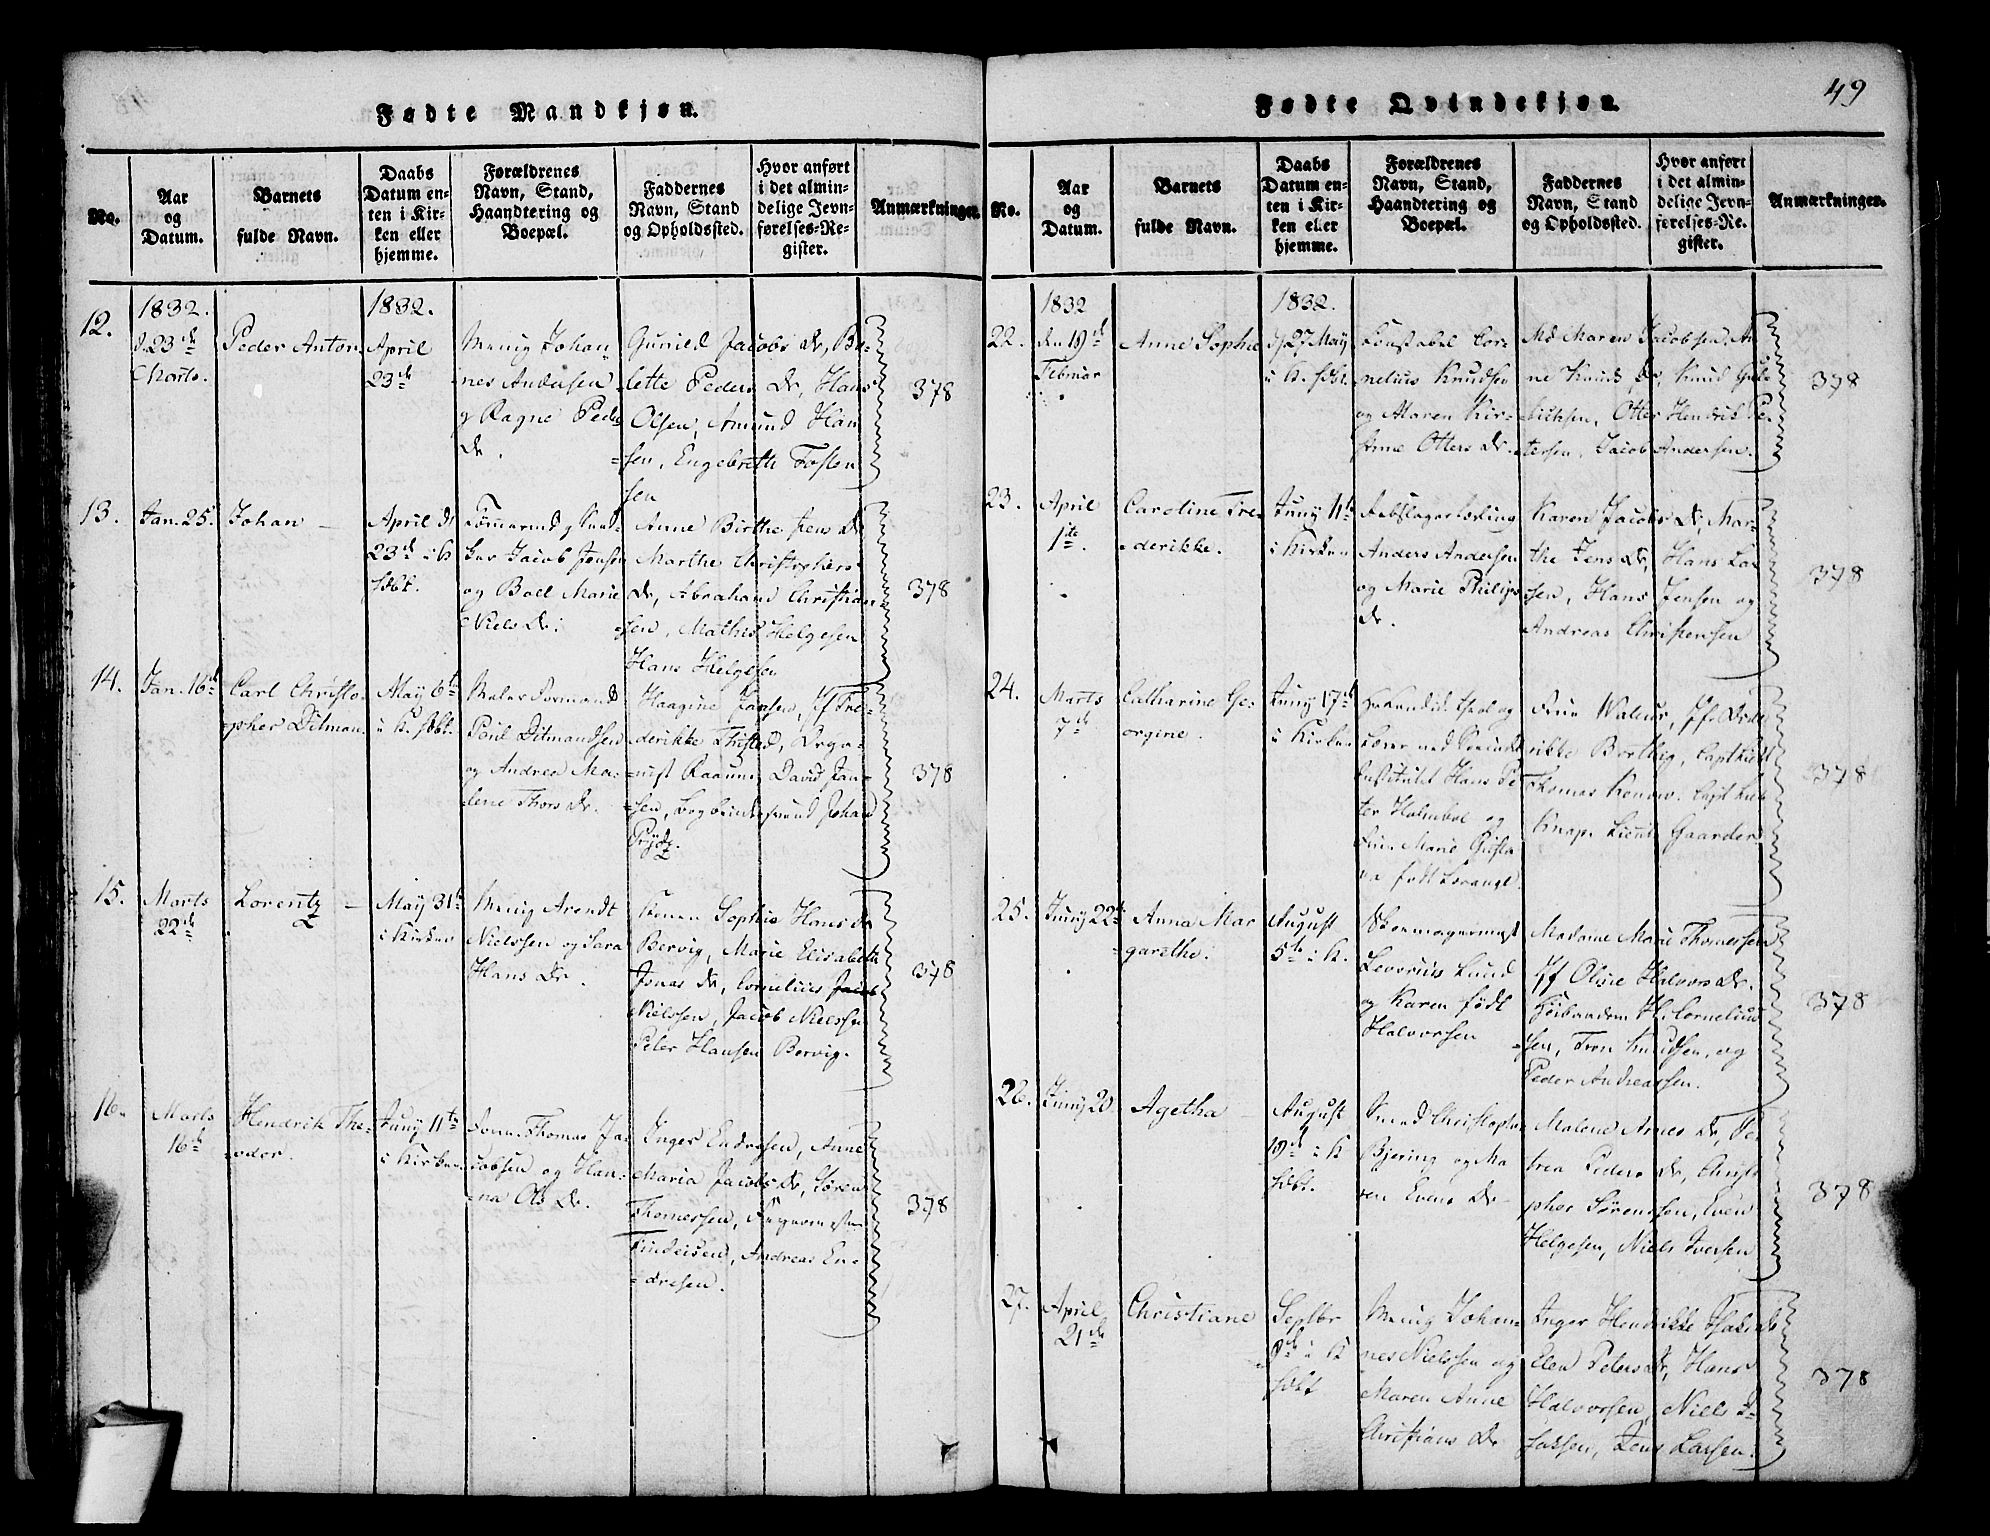 49
Fødte Mandkjøn.
No.
Aar
og
Datum.
Barnets
fulde Navn.
Daabs
Datum en-
ten i Kir-
ken eller
hjemme.
Forældrenes
Navn, Stand,
Haandtering og
Boepæl.
Faddernes
Navn, Stand
og Opholdssted.
Hvor anført
i det almin-
delige Jevn-
førelses-Re-
gister.
Anmærkninger.
12.
1832.
d. 23de
Marts.
Peder Anton
1832.
April
23de
Menig Johan-
nes Andersen
og Ragne Peders
Dr.
Gunild Jacobs Dr, Bo-
lette Peders Dr, Hans
Olsen, Amund Han
sen, Engebreth Tosten
sen
378
13.
Jan. 25.
Johan —
April d
23de i K
Jacob Jensen
og Boel Marie
Niels Dr.
Anne Birthe Iens Dr
Marthe Christophers
Dr, Abraham Christian-
sen, Mathis Helgesen
Hans Helgesen
378
14.
Jan. 16de
Carl Christo-
pher Ditman.
May 6te
i K.
Poul Ditmandsen
og Andrea Ma-
lene Thors Dr.
Haagine Jansen, Jf Fre-
derikke Thisted, Orga-
nist Raaum, David Jan-
sen, Bogbindersvend Johan
Prydz.
378
15.
Marts
22de
Lorentz —
May 31te
i Kirken
Menig Arendt
Nielssen og Sara
Hans Dr.
Konen Sophie Hans Dr
Bervig, Marie Elisabeth
Jonas Dr, Cornelius Jacob
Nielssen, Jacob Nielssen
Peter Hansen Bervig.
378
16.
Marts
16de
Hendrik The-
odor.
Juny 11te
i Kirken
Thomas Ja-
cobsen og Han-
na Ols Dr.
Inger Endresen, Anne
Maria Jacobs Dr, Søren
Thomessen,
Findeisen, Andreas En-
dresen.
378
Fødte Qvindekjøn.
No.
Aar
og
Datum.
Barnets
fulde Navn.
Daabs
Datum en-
ten i Kir-
ken eller
hjemme.
Forældrenes
Navn, Stand,
Haandtering og
Boepæl.
Faddernes
Navn, Stand
og Opholdssted.
Hvor anført
i det almin-
delige Jevn-
førelses-Re-
gister.
Anmærkninger.
22.
1832
den 19de
Februar
Anne Sophie
1832.
27 May
i K.
Constabel Cor-
nelius Knudsen
og Maren Kir-
stine Otters Dr.
Md Maren Jacobsen, An
ne Knuds Dr, Knud Gul-
briksen, Otter Hendrik Pe-
tersen, Jacob Andersen.
378
23.
April
1te
Caroline Fre-
derikke.
Juny 11te
i Kirken
Anders Andersen
og Marie Philips
Dr.
Karen Jacobs Dr, Mar-
the Jens Dr, Hans Lar
sen, Hans Jensen og
Andreas Christensen
378
24.
Marts
7de
Catharine Ge-
orgine.
Juny 17de
i Kirken
Lærer ved
Institutet Hans Pe
ter Holmboe og
Fru Marie Gusta
va født
Frue Waleur, Jf.
rikke Borthig,
Thomas Konow. Capt
Knap. Lieut Gaarder
378
25.
Juny 22de
Anna Mar
garethe.
August
5te i K.
Skoemagermest
Levorius Lund
og Karen født
Halvorsen
Madame Marie Thomessen
Jf Olsie Halvors Dr.
H. Cornelius
sen, Tron Knudsen, og
Peder Andreassen.
378
26.
Juny 20
Agetha —
August
19de i K
Christopher
Bjering og Ma
ren Evens Dr
Malene Arnes Dr, Pe
trea Peders Dr, Christo
pher Sørenssen, Even
Helgesen, Niels Iversen
378
27.
April
21de
Christiane
Septbr
i K
Menig Johan-
nes Nielssen og
Maren Anne
Christians Dr
Inger Hendrikke
Elen Peters Dr, Hans
Halvorsen, Niels
Jens Larsen.
378